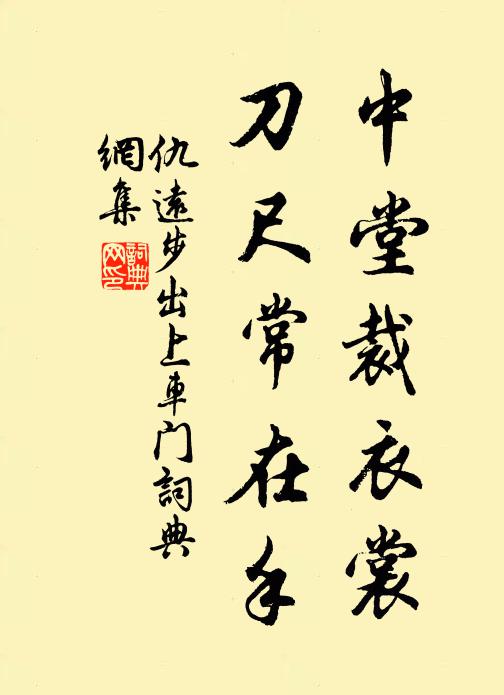 中堂裁衣裳
刀尺常在手
仇遠步出上車门詞典
網集
詞典網印